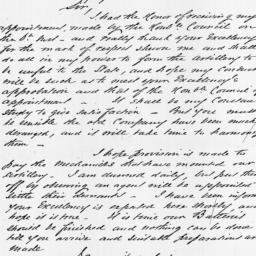 Sir,
I had the Honor of receiving my
appointment, made by the Honble. Council on
the 6th Inst - and really thank your Excellency
for the mark of respect shewn me and shall
do all in my power to form the Artillery to
be useful to the State, and hope my conduct
will be such as to meet your Excellency's
approbation and that of the Honble. Council of
appointment - It shall be my constant
study to give satisfaction - But you must
be sensible the old Company have been much
deranged, and it will take time to harmonize
them -
I hope provision is made to
pay the Mechanics that have mounted our
Artillery. I am dunned daily, but put them
off by observing an agent will be appointed to
settle their demands - I have been informed
your Excellency is expected here shortly, and
hope it is true - It is time our Batteries
should be finished and nothing can be done
till you arrive and suitable preparations are
made